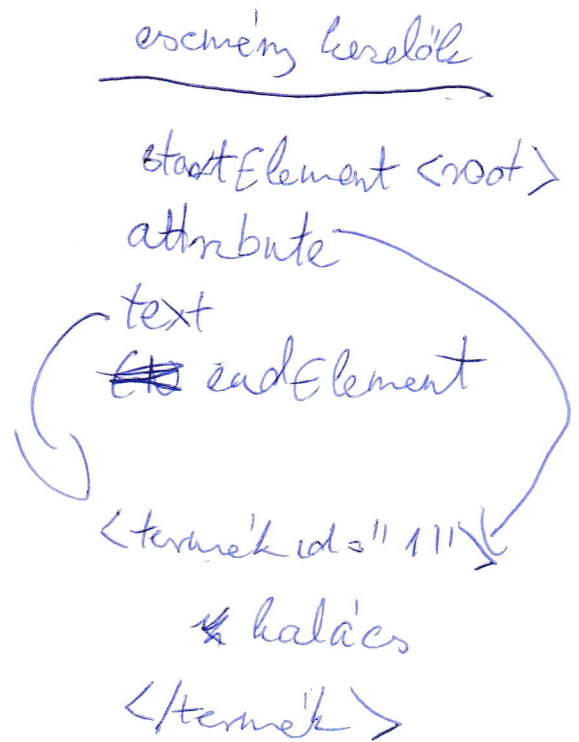 esemény kezelők
startElement <root>
attribute
text
endElement
<termék id="1">
kalács
</termék>